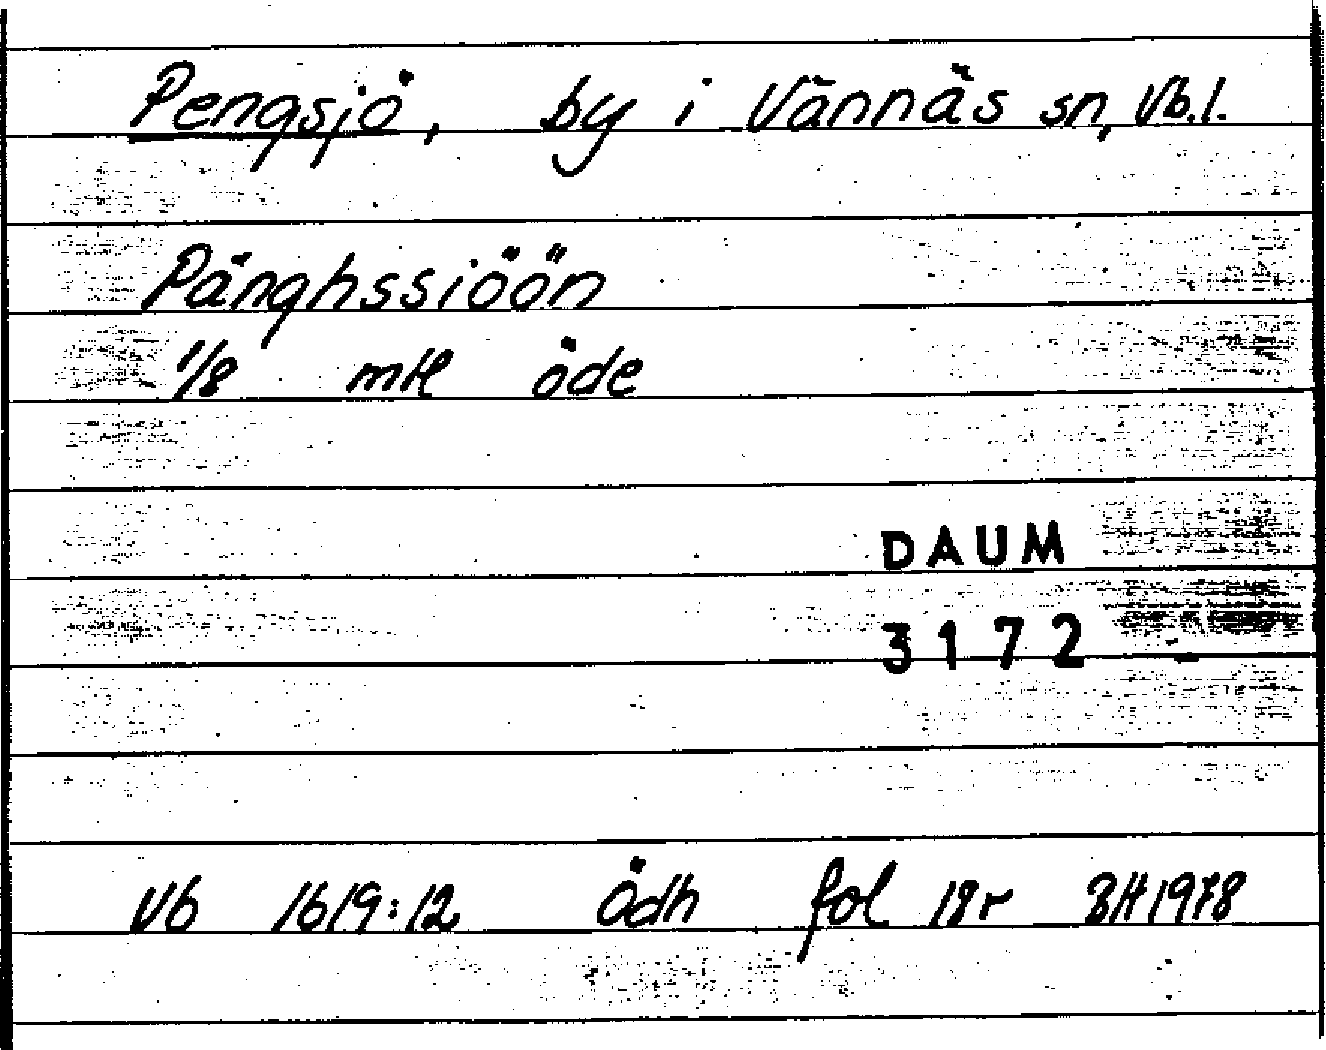 Pengsjö, by i Vännäs sn, Vb.l.
Pänghssiöön
1/8 mtl öde
DAUM
3172
Vb 1619:12 Ödh fol 18r BH 1978